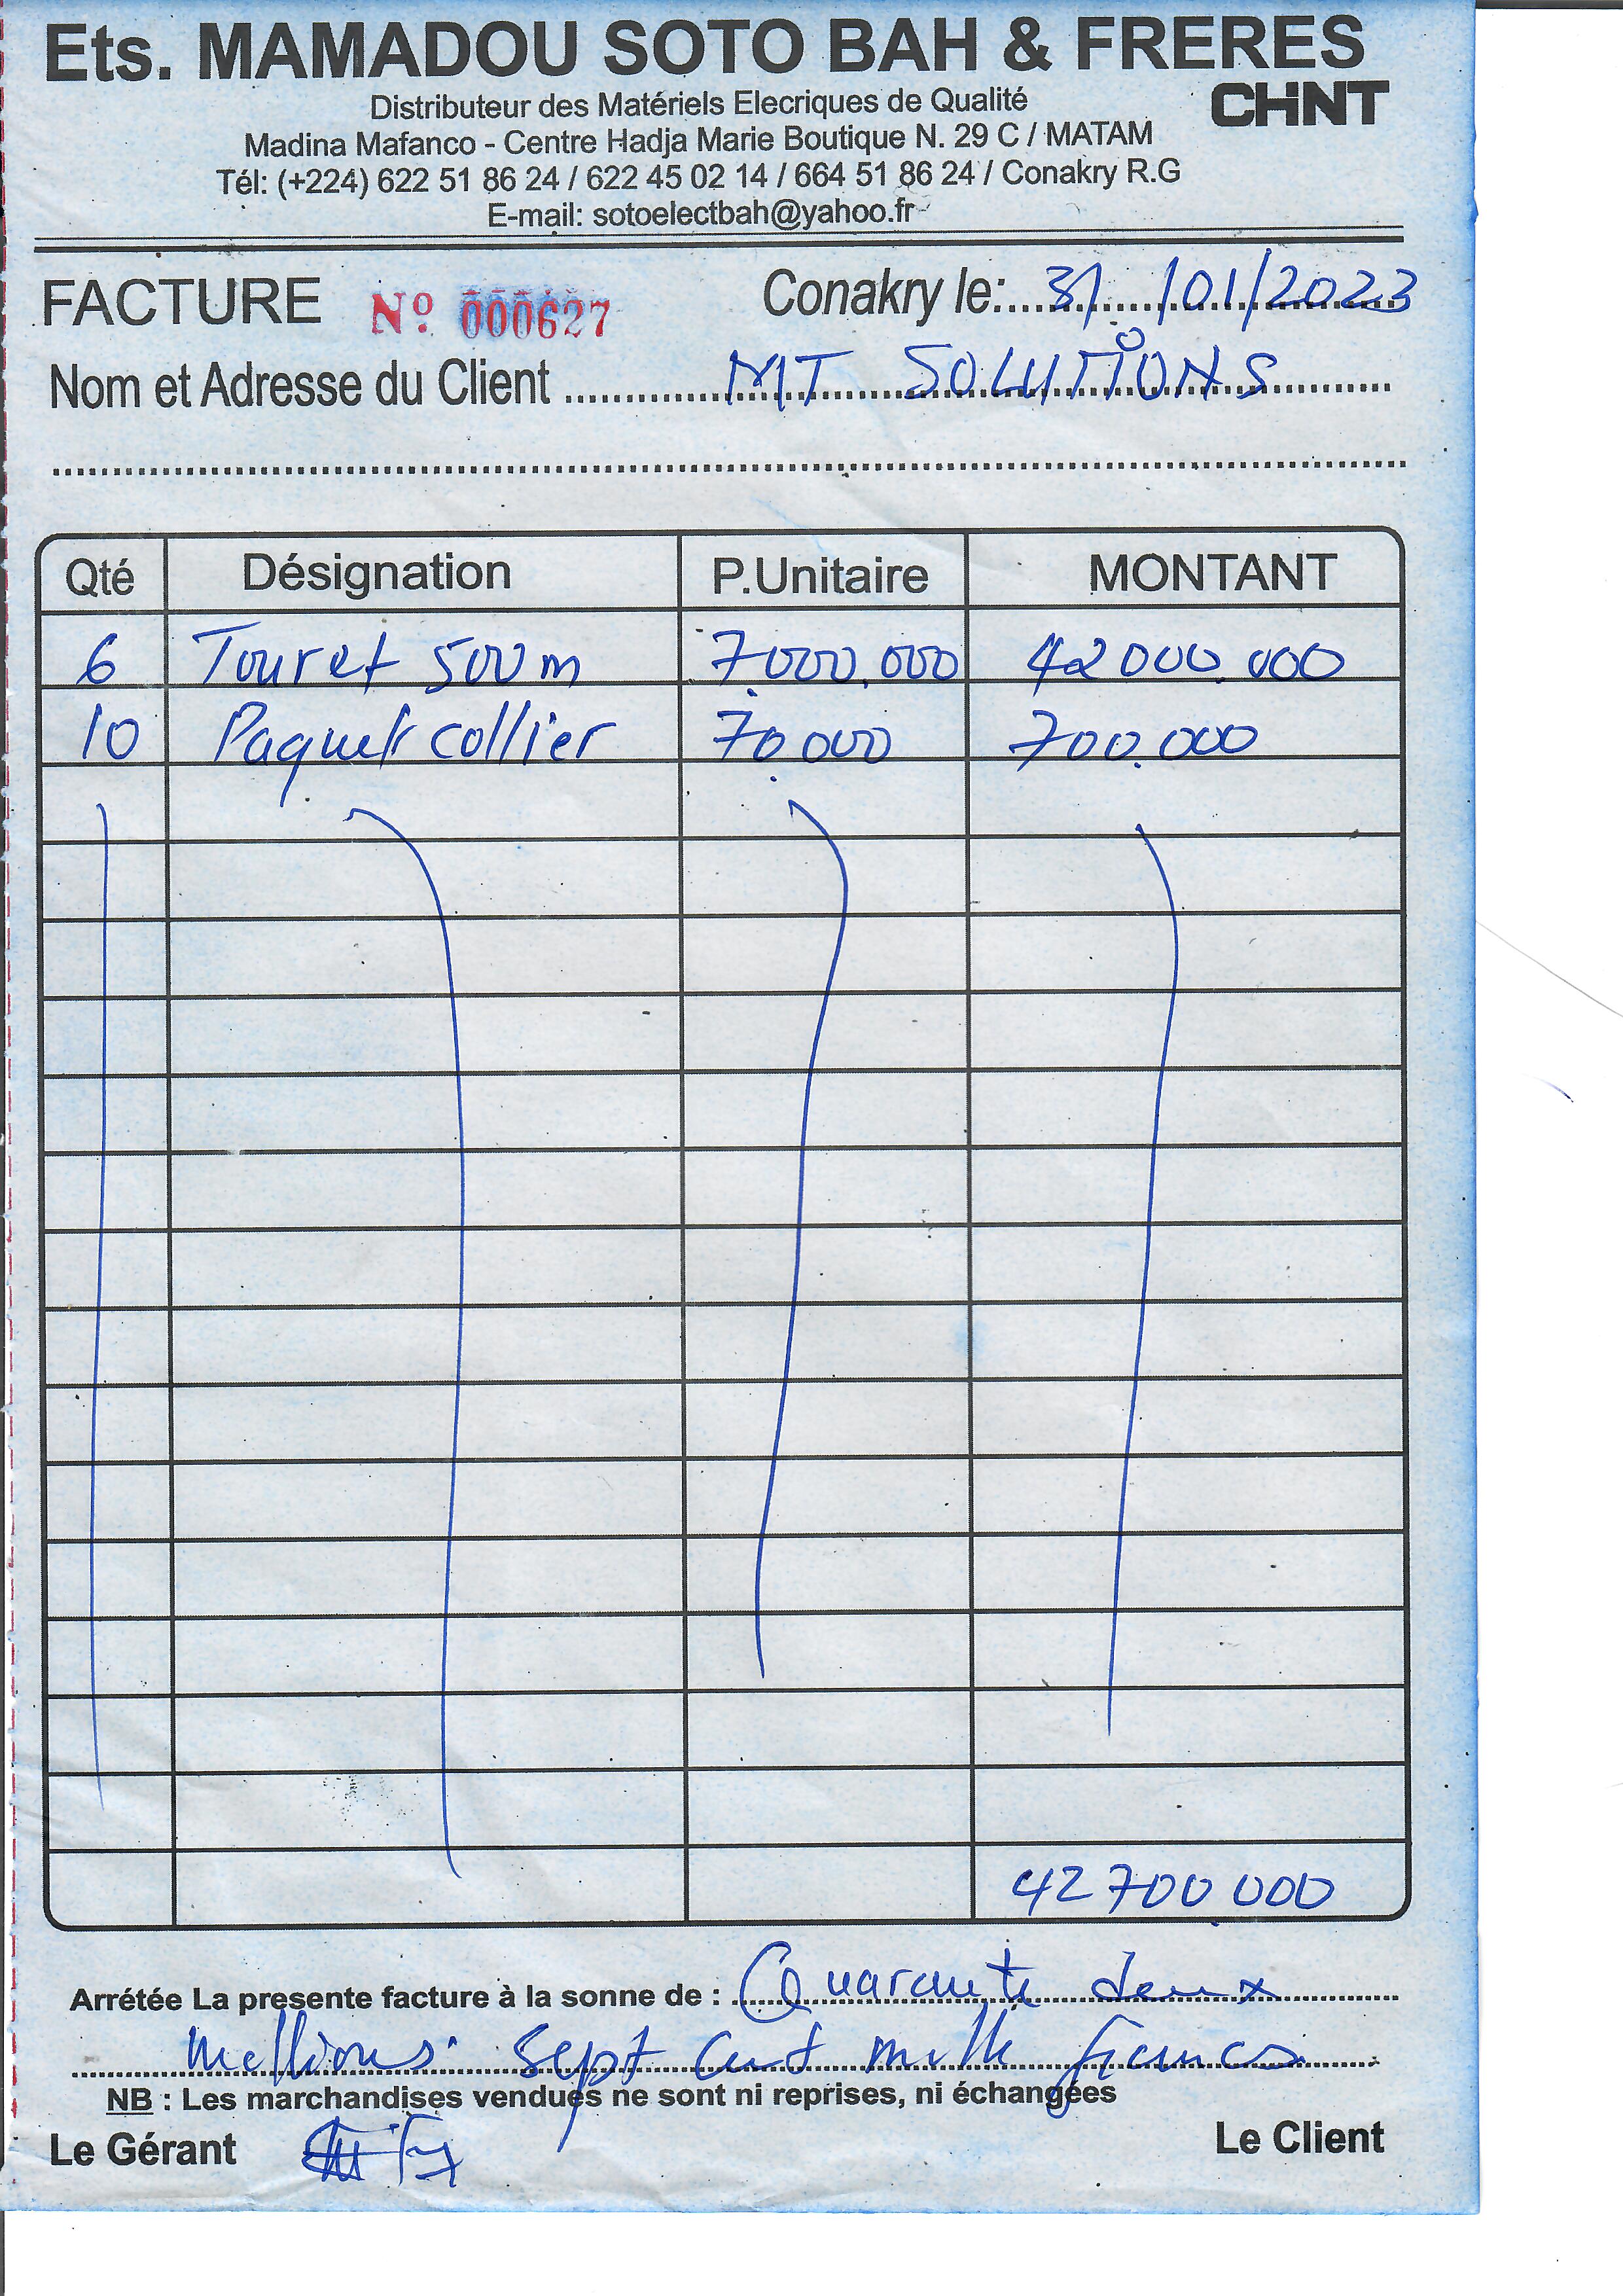 Ets. MAMADOU SOTO BAH & FRERES
CHNT
Distributeur des Matériels Elecriques de Qualité
Madina Mafanco - Centre Hadja Marie Boutique N. 29 C / MATAM
Tél: (+224) 622 51 86 24 / 622 45 02 14 / 664 51 86 24 / Conakry R.G
E-mail: sotoelectbah@yahoo.fr
FACTURE Nº 000627 Conakry le: 31 /01/2023
Nom et Adresse du Client MT SOLUTIONS
Qté Désignation P.Unitaire MONTANT
6 Touret 500m 7.000.000 42 000.000
10 Paquet collier 70.000 700.000
42 700.000
Arrétée La presente facture à la sonne de : Quarante deux
millions sept cent mille francs
NB : Les marchandises vendues ne sont ni reprises, ni échangées
Le Gérant Le Client